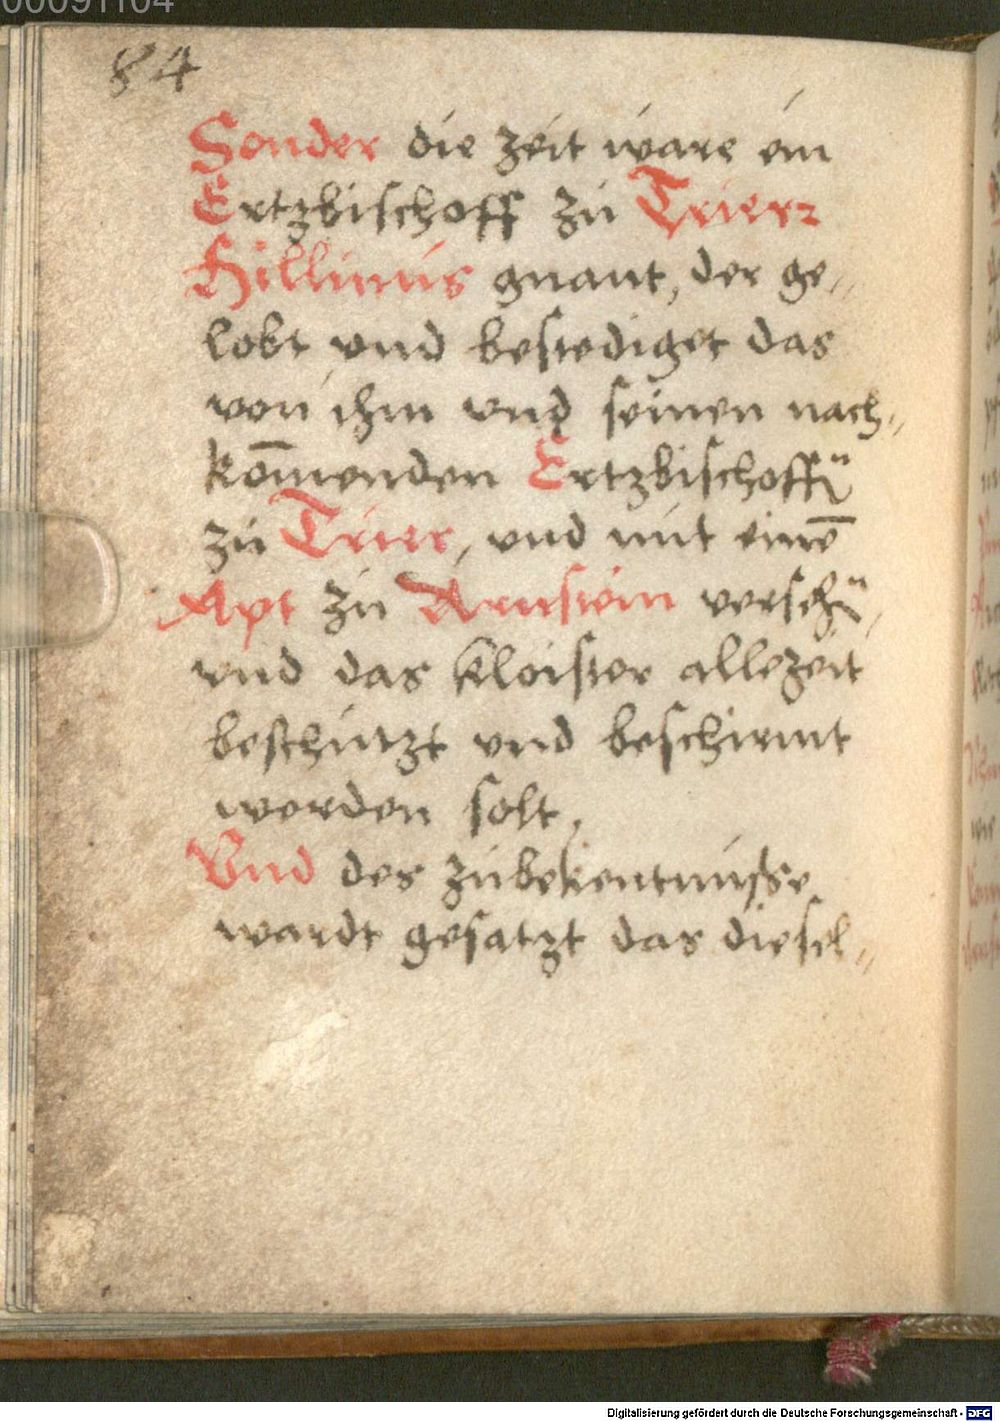 00091104
84
Sonder die zeit ware ein
Ertzbischoff zu Trierr
Hillinus gnant, der ge„
lobt und bestediget das
von ihm und seinen nach„
kom̄enden Ertzbischoffn̈
zu Trier, und mit einē
Apt zu Arnstein versehn̈,
und das kloister allezeit
beschutzt und beschirmt
werden solt,
Und des zubekentnusse
wardt gesatzt das diesel„
Digitalisierung gefördert durch die Deutsche Forschungsgemeinschaft - DFG